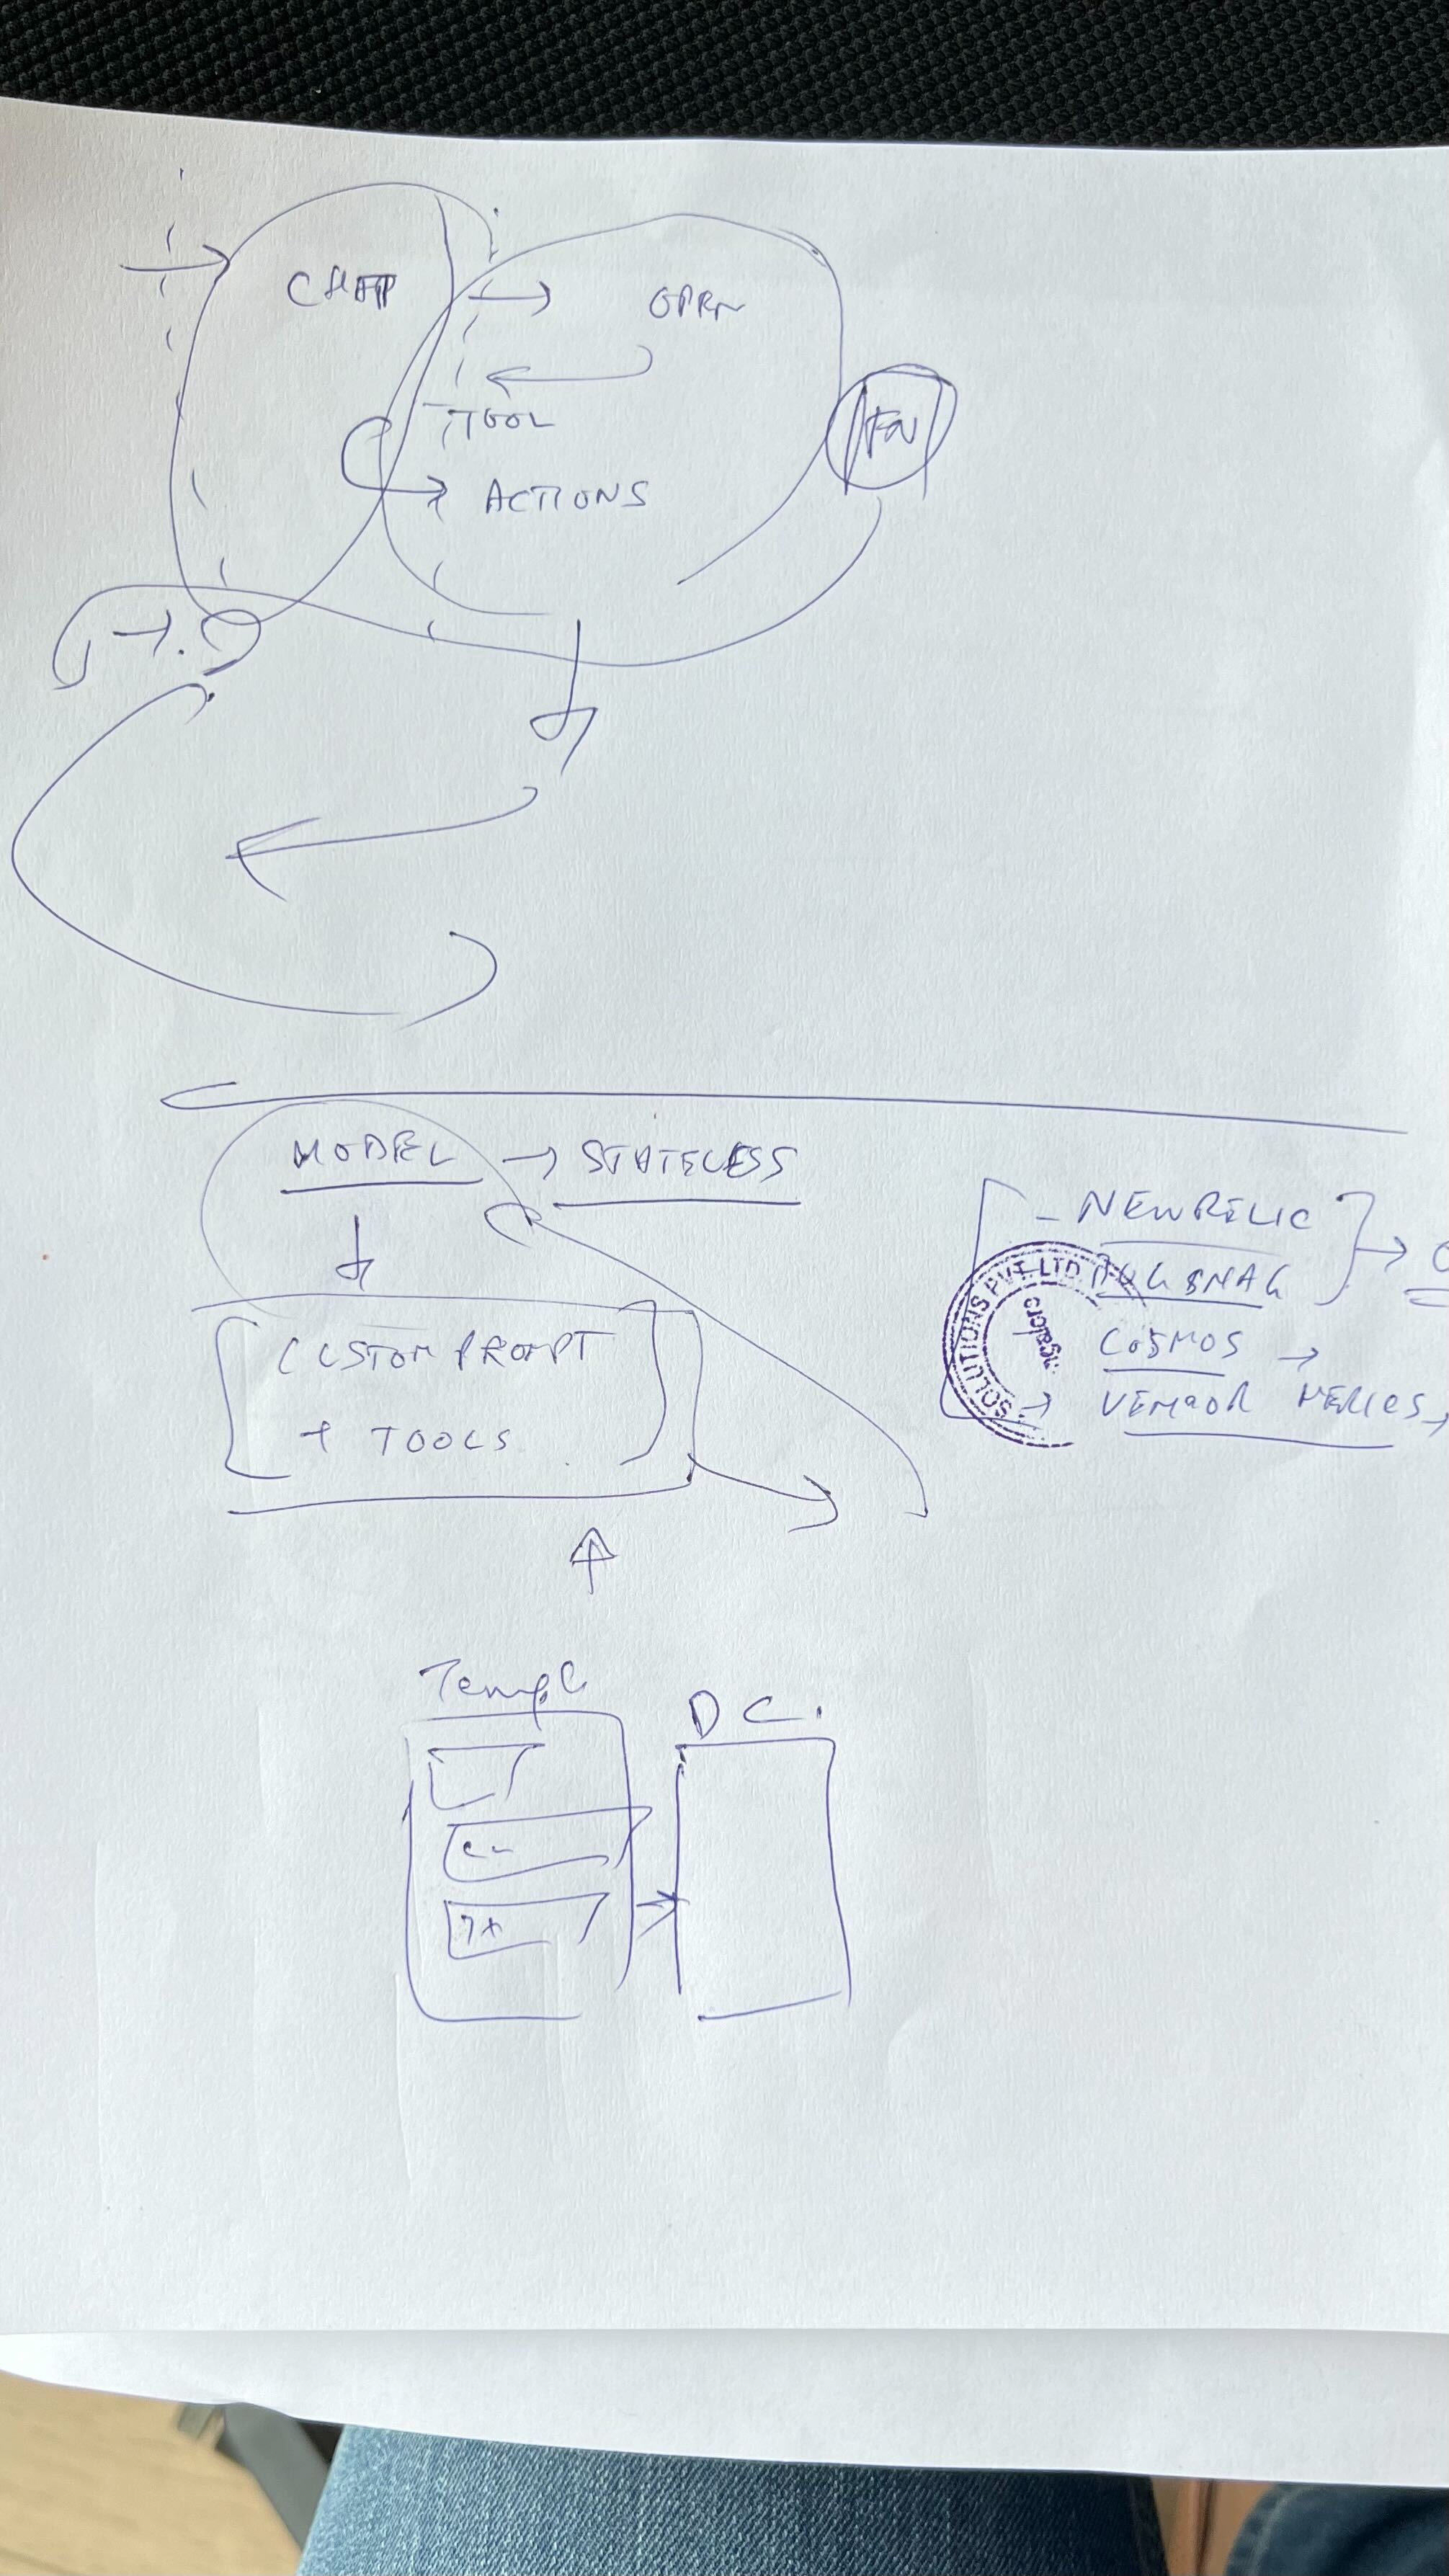 TOOL
ACTIONS
MODEL → STATELESS
CUSTOM PROMPT
+ TOOLS
- NEWRELIC
BUGSNAG
COSMOS →
→ VENDOR
SOLUTIONS PVT. LTD.
Templ
D C.